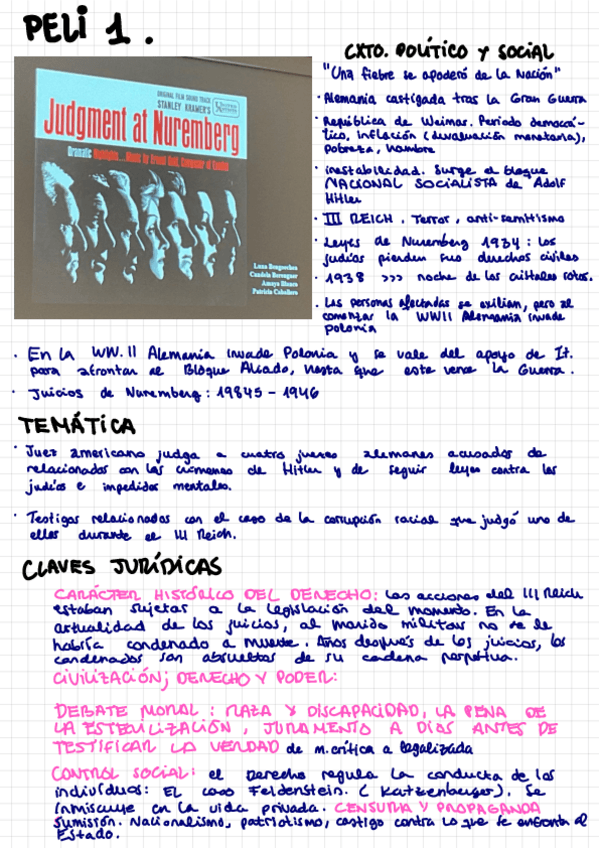 PELI 1.
ORIGINAL FILM SOUND TRACK
STANLEY KRAMER'S
UNITED ARTISTS
Judgment at Nuremberg
Dramatic Highlights... Music by Ernest Gold, Composer of Exodus
Luna Bengoechea
Candela Berenguer
Amaya Blanco
Patricia Caballero
CXTO. POLÍTICO Y SOCIAL
"Una fiebre se apoderó de la Nación"
· Alemania castigada tras la Gran Guerra
· República de Weimar. Periodo democrá-
tico, inflación (devaluación monetaria),
pobreza, hambre
· inestabilidad. Surge el bloque
NACIONAL SOCIALISTA de Adolf
Hitler
· III REICH. Terror, anti-semitismo
· Leyes de Nuremberg 1934: los
judíos pierden sus derechos civiles
· 1938 >>> noche de los cristales rotos.
· Las personas afectadas se exilian, pero al
comenzar la WWII Alemania invade
polonia
· En la WW.II Alemania invade Polonia y se vale del apoyo de It.
para afrontar al Bloque Aliado, hasta que este vence la Guerra.
· Juicios de Nuremberg: 19845 - 1946
TEMÁTICA
· Juez americano juzga a cuatro jueces alemanes acusados de
relacionados con los crímenes de Hitler y de seguir leyes contra los
judíos e impedidos mentales.
· Testigos relacionados con el caso de la corrupción racial que juzgó uno de
ellos durante el III Reich.
CLAVES JURÍDICAS
CARÁCTER HISTÓRICO DEL DERECHO: Las acciones del III Reich
estaban sujetas a la legislación del momento. En la
actualidad de los juicios, al marido militar no se le
habría condenado a muerte. Años después de los juicios, los
condenados son absueltos de su cadena perpetua.
CIVILIZACIÓN; DERECHO Y PODER:
DEBATE MORAL: RAZA Y DISCAPACIDAD, LA PENA DE
LA ESTERILIZACIÓN, JURAMENTO A DIOS ANTES DE
TESTIFICAR LA VERDAD de m.crítica a legalizada
CONTROL SOCIAL: el Derecho regula la conducta de los
individuos: EL caso Feldenstein. (Katzenberger). Se
inmiscuye en la vida privada. CENSURA Y PROPAGANDA
sumisión. Nacionalismo, patriotismo, castigo contra lo que se enfrenta al
Estado.